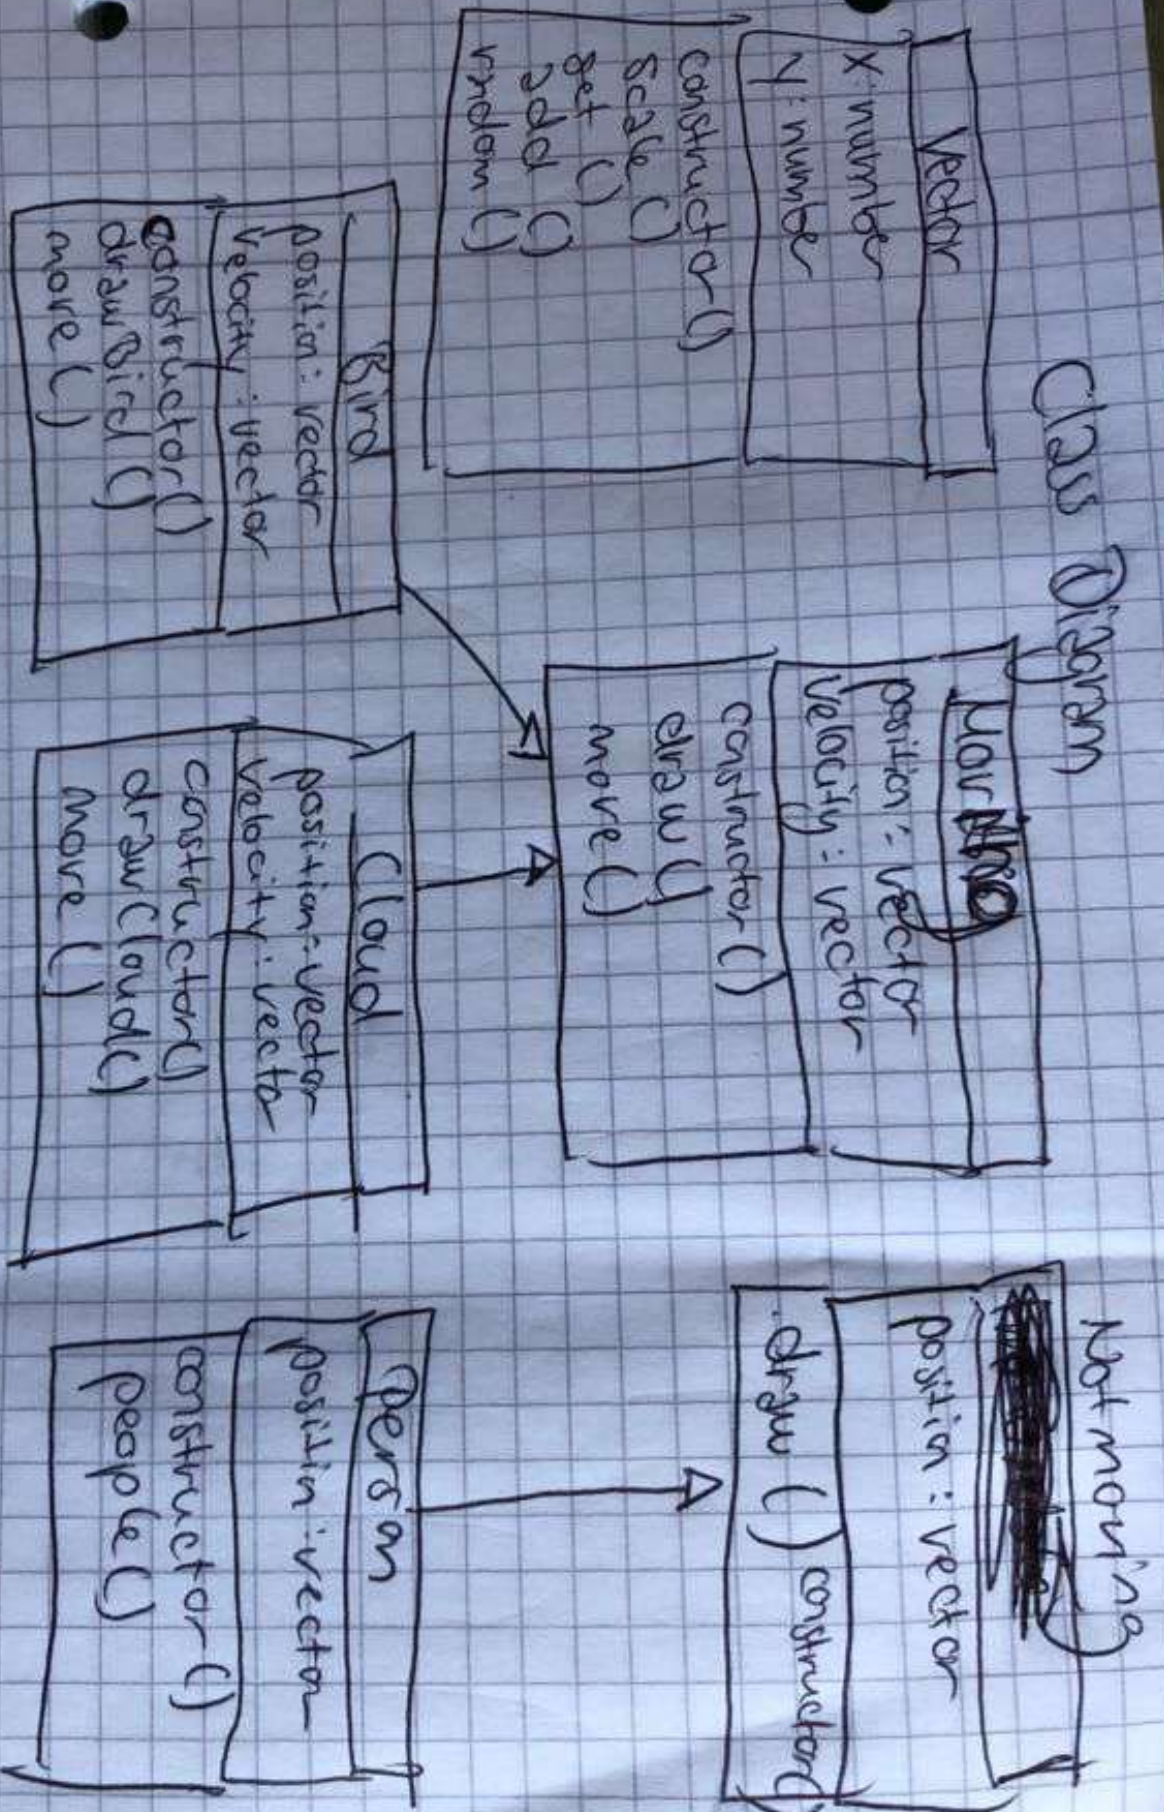 Class Diagram
Vector
x: number
y: number
constructor()
scale()
set ()
add ()
random()
Moving
position: vector
velocity: vector
constructor()
draw()
move()
Not moving
position: vector
draw() constructor()
Bird
position: vector
velocity: vector
constructor()
drawBird()
move()
Cloud
position: vector
velocity: vector
constructor()
drawCloud()
move()
Person
position: vector
constructor()
people()